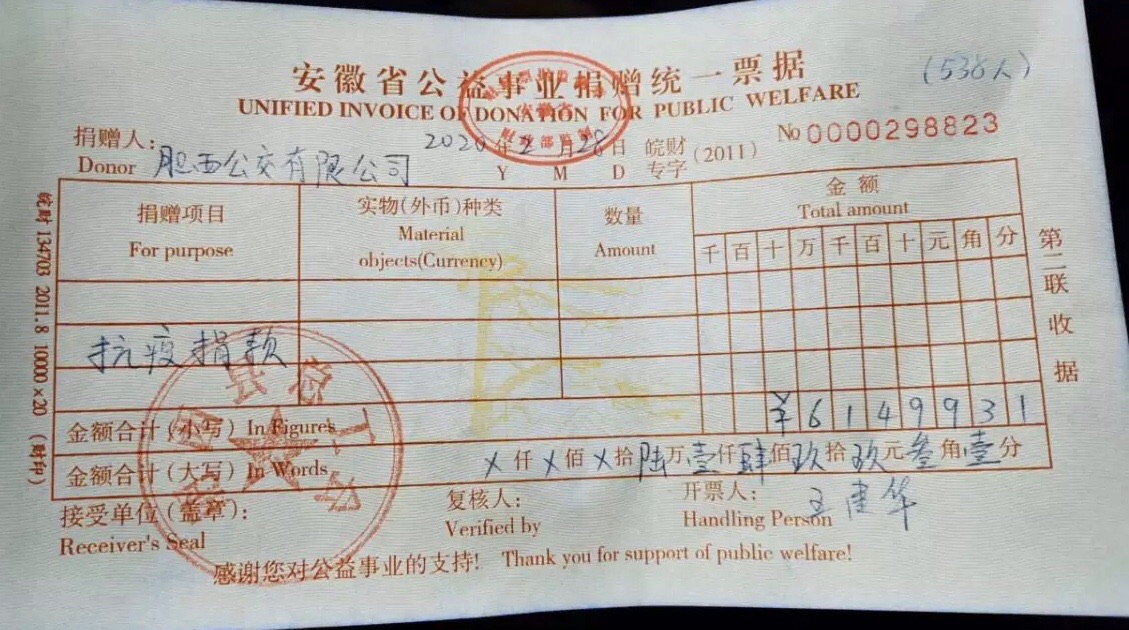 安徽省公益事业捐赠统一票据
(538人)
UNIFIED INVOICE OF DONATION FOR PUBLIC WELFARE
捐赠人:
2020年2月28日
皖财
专字(2011)
No 0000298823
Donor 肥西公交有限公司
Y M D
捐赠项目
For purpose
实物(外币)种类
Material
objects(Currency)
数量
Amount
金额
Total amount
千 百 十 万 千 百 十 元 角 分
抗疫捐款
金额合计(小写) In Figures
¥6149931
金额合计(大写) In Words
X仟X佰X拾陆万壹仟肆佰玖拾玖元叁角壹分
接受单位(盖章):
Receiver's Seal
复核人:
Verified by
开票人:
Handling Person
王建华
感谢您对公益事业的支持! Thank you for support of public welfare!
第二联 收据
皖财 134703 2011.8 10000×20 (财印)